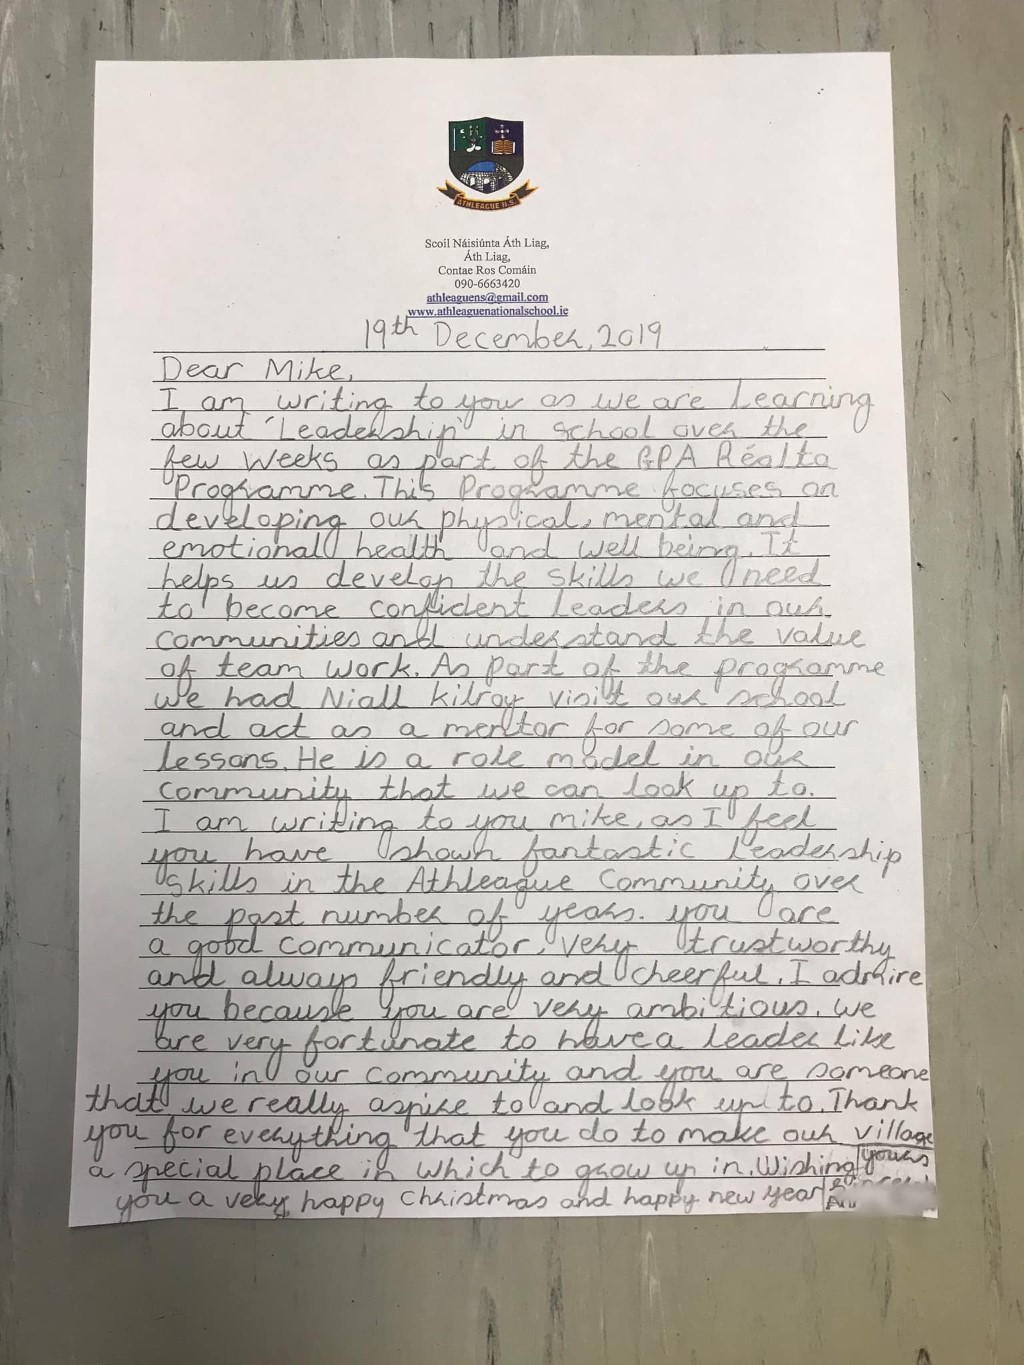 ATHLEAGUE N.S.
Scoil Náisiúnta Áth Liag,
Áth Liag,
Contae Ros Comáin
090-6663420
athleaguens@gmail.com
www.athleaguenationalschool.ie
19th December, 2019
Dear Mike,
I am writing to you as we are Learning
about 'Leadership' in school over the
few Weeks as part of the GPA Réalta
Programme. This Programme focuses on
developing our physical, mental and
emotional health and well being. It
helps us develop the skills we need
to become confident Leaders in our
communities and understand the value
of team work. As part of the programme
we had Niall Kilroy visit our school
and act as a mentor for some of our
lessons. He is a role model in our
community that we can look up to.
I am writing to you mike, as I feel
you have shown fantastic Leadership
skills in the Athleague Community over
the past number of years. you are
a good communicator, very trustworthy
and always friendly and cheerful. I admire
you because you are very ambitious. we
are very fortunate to have a leader like
you in our community and you are someone
that we really aspire to and look up to. Thank
you for everything that you do to make our village
a special place in which to grow up in. Wishing yours
you a very happy Christmas and happy new year